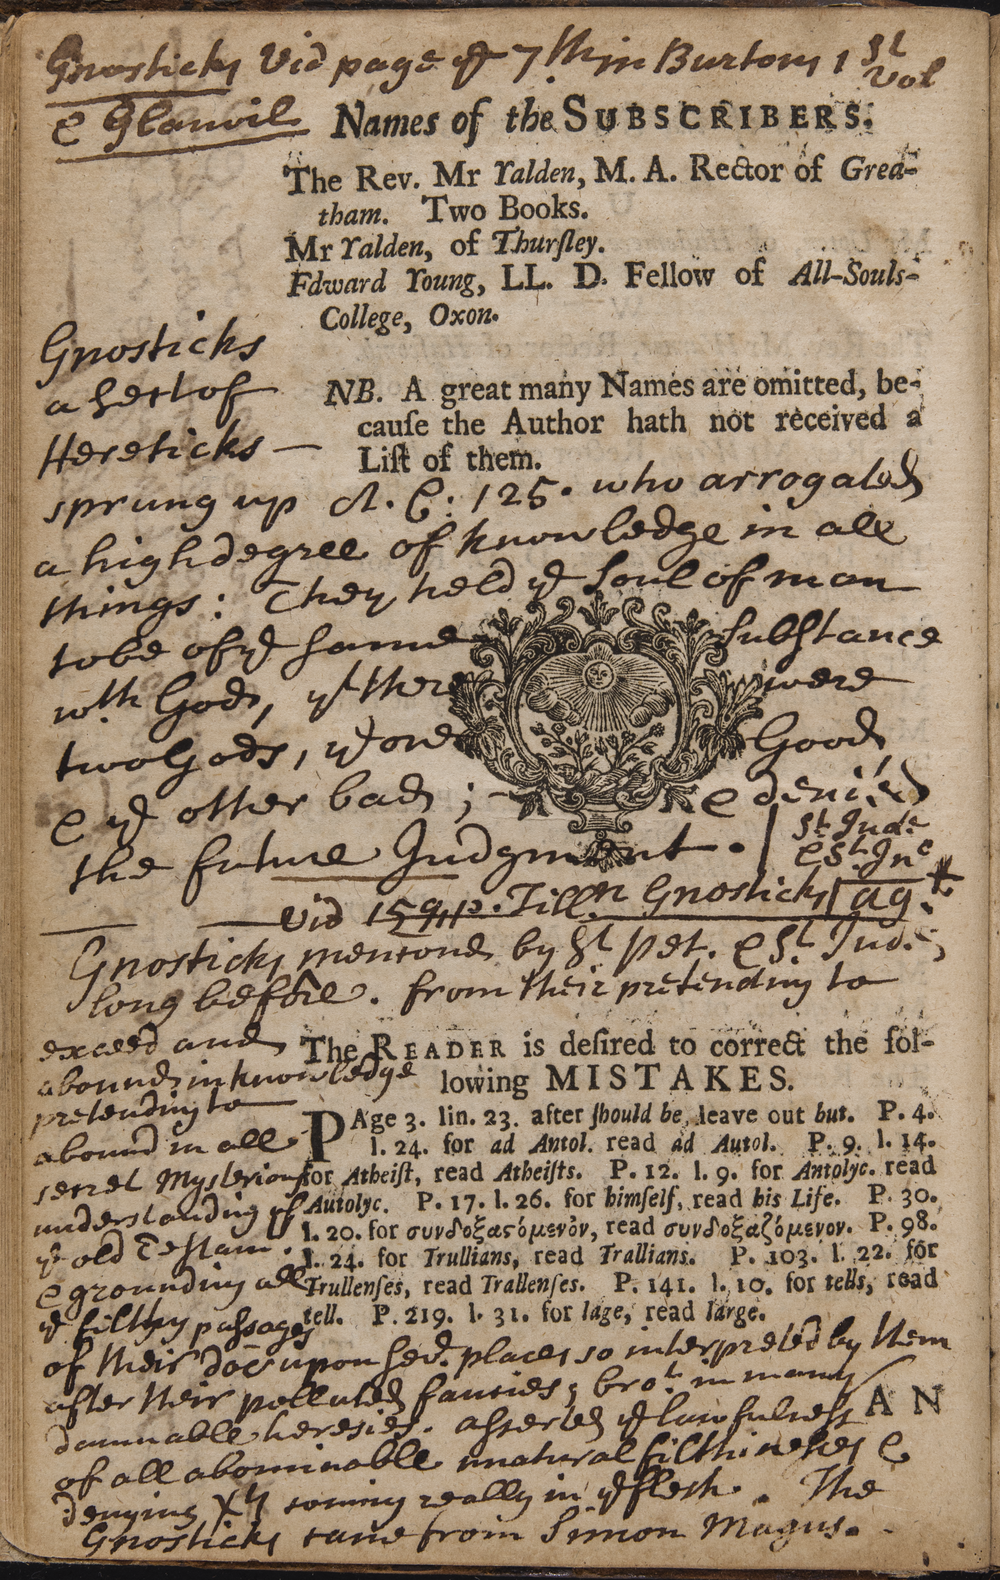 Gnosticks Vid page ye 7th in Burtons 1st vol
& Glanvil
Names of the SUBSCRIBERS.
The Rev. Mr Yalden, M. A. Rector of Grea-
tham. Two Books.
Mr Yalden, of Thurſley.
Edward Young, LL. D. Fellow of All-Souls-
College, Oxon.
NB. A great many Names are omitted, be-
cauſe the Author hath not received a
Liſt of them.
Gnosticks
a Sect of
Hereticks —
sprung up A. C: 125. who arrogated
a high degree of knowledge in all
things: They held ye Soul of man
to be of ye same substance
wth Gods, yt there were
two Gods, ye one Good
& ye other bad; & denied
the future Judgment.
St Jude
& St Jno
ag.t
Vid 159 p. Till.n Gnosticks
Gnosticks mentoned by St Pet. & St Jude
long before. from their pretending to
exceed and
abound in knowledge
pretending to
abound in all
secret Mysterious
understanding of
ye old Testam.
& grounding all
ye filthy passages
of their doc upon sevl places so interpreted by them
after their polluted fancies; brot in many
damnable heresies. asserted ye lawfulness
of all abominable unatural filthinesses &
denying Xts coming really in ye flesh. The
Gnosticks came from Simon Magus.
The READER is deſired to correct the fol-
lowing MISTAKES.
PAge 3. lin. 23. after ſhould be, leave out but. P. 4.
l. 24. for ad Antol. read ad Autol. P. 9. l. 14.
for Atheiſt, read Atheiſts. P. 12. l. 9. for Antolyc. read
Autolyc. P. 17. l. 26. for himſelf, read his Life. P. 30.
l. 20. for συνδοξαςόμενόν, read συνδοξαζόμενον. P. 98.
l. 24. for Trullians, read Trallians. P. 103. l. 22. for
Trullenſes, read Trallenſes. P. 141. l. 10. for tells, read
tell. P. 219. l. 31. for lage, read large.
AN